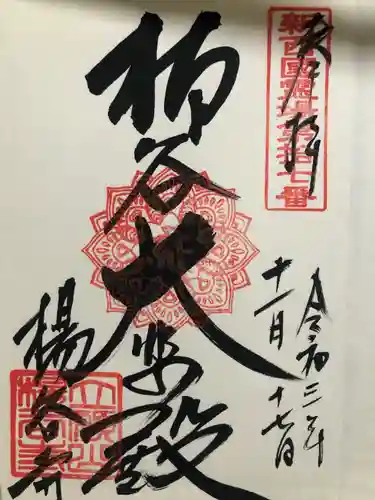 奉拝
新西國霊場第拾七番
令和三年
十一月十七日
柳谷大悲殿
楊谷寺